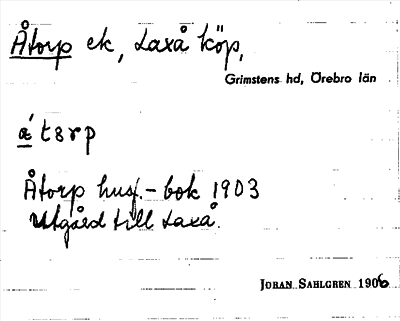 Åtorp ek, Laxå köp,
Grimstens hd, Örebro län
a´ t8rp
Åtorp husf.-bok 1903
Utgård till Laxå.
JOHAN SAHLGREN 1906